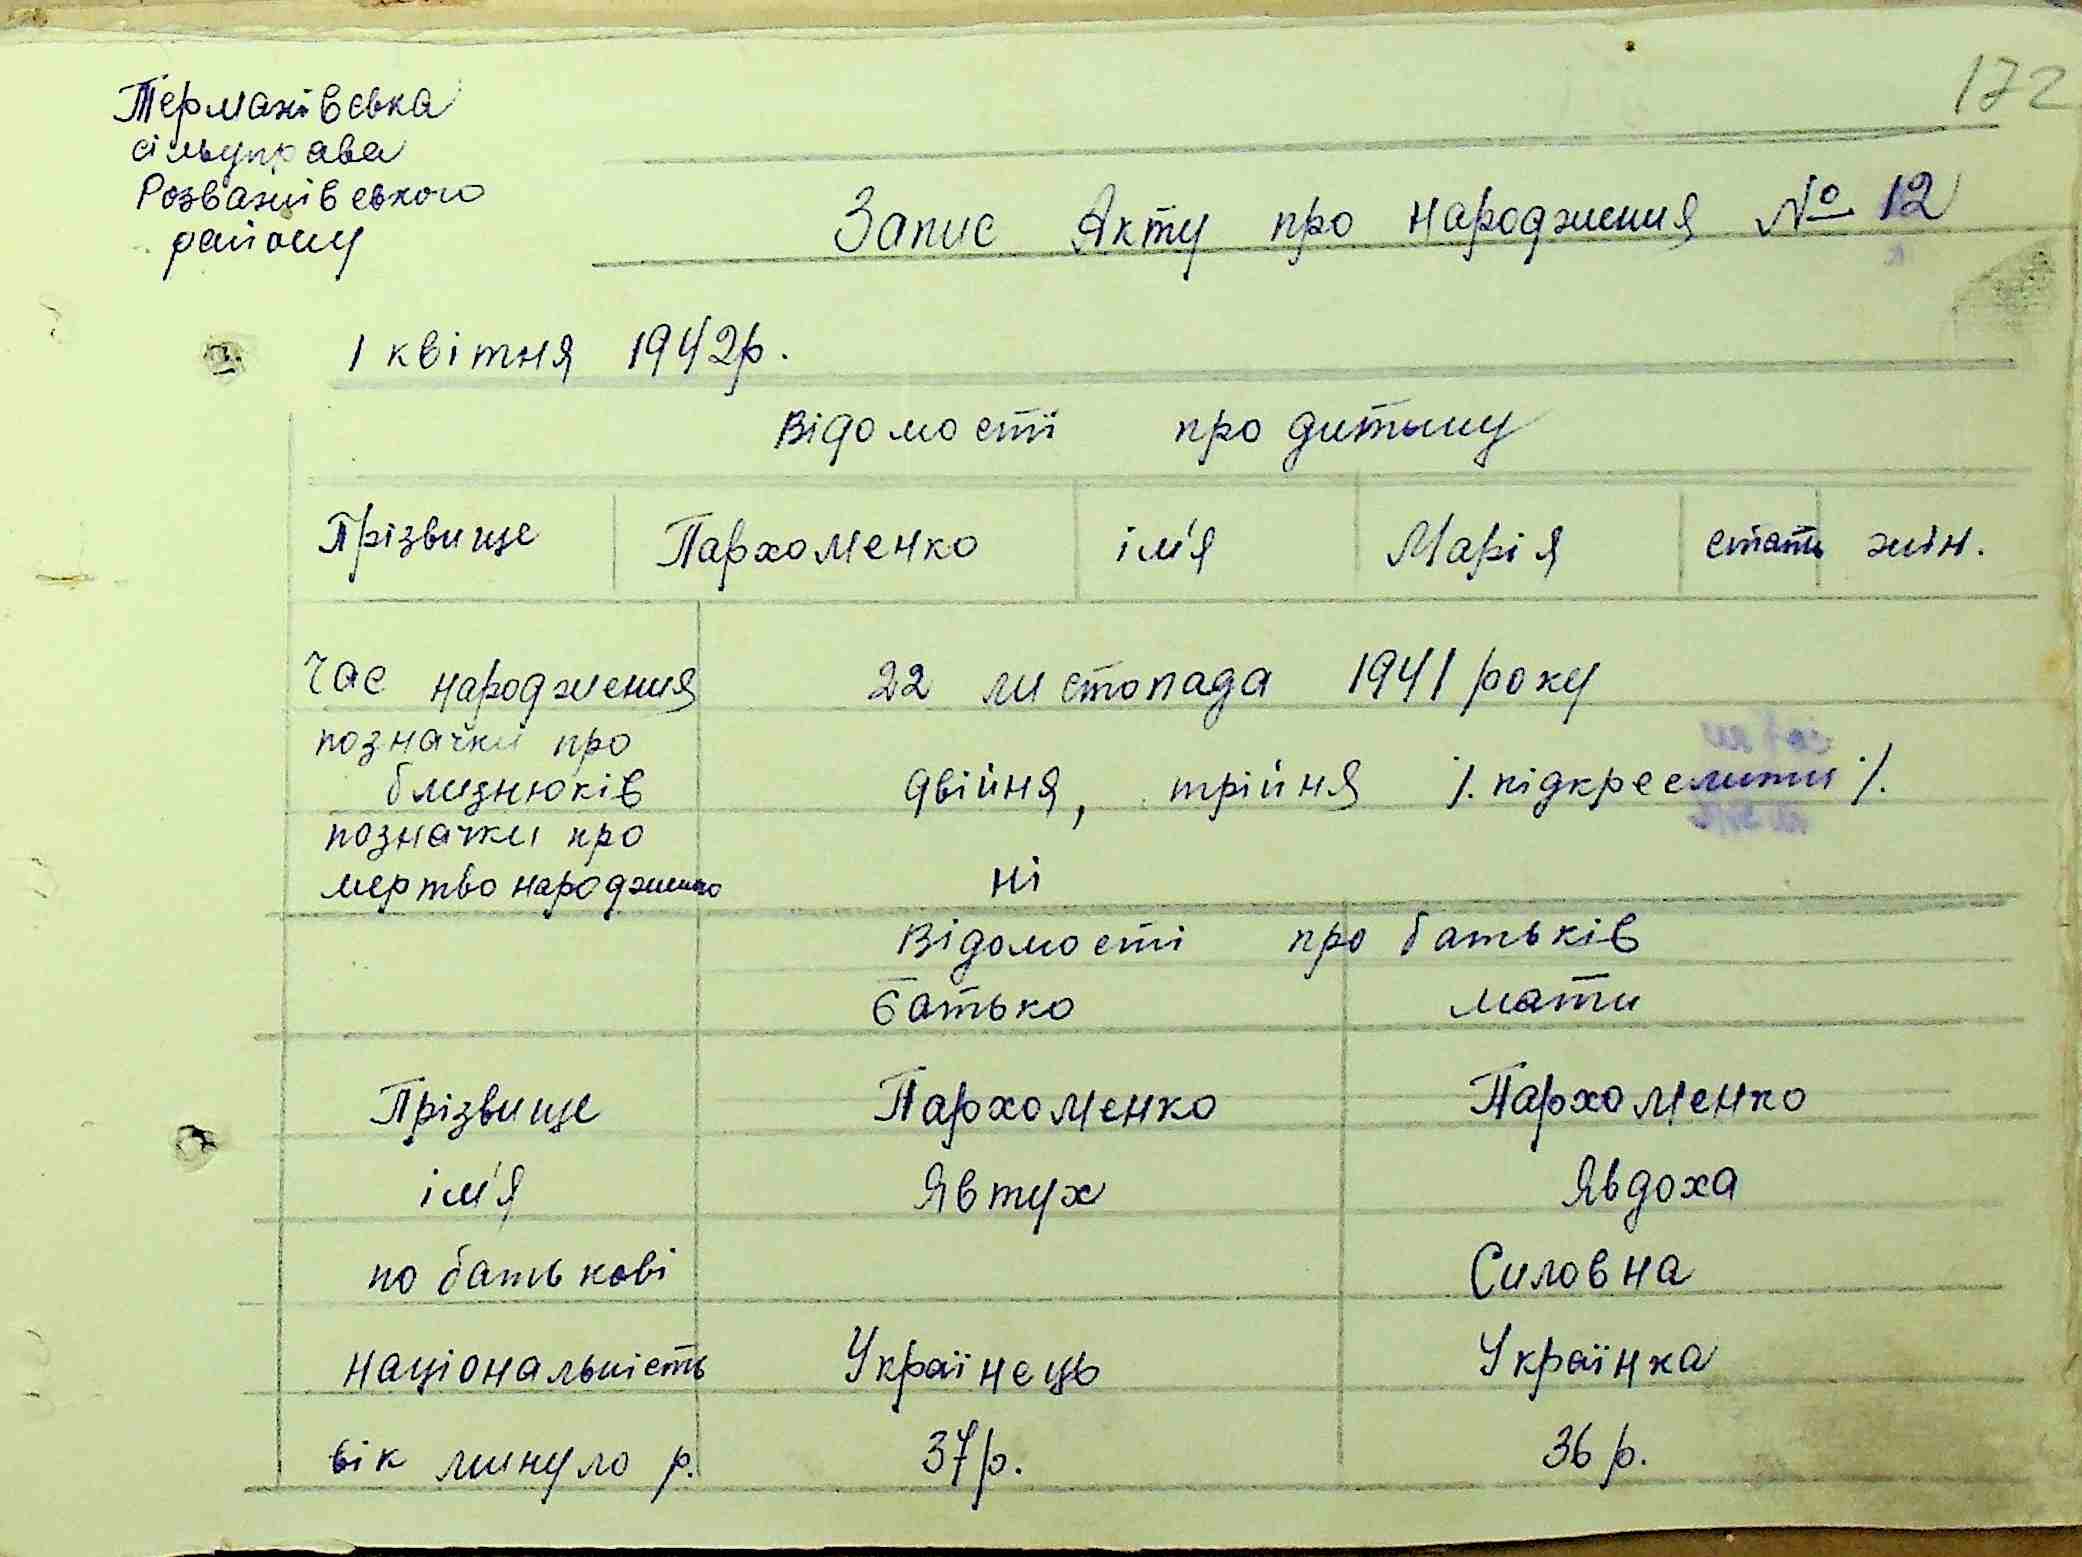 172
Термахівська
сільуправа
Розважівського
району
Запис Акту про народження № 12
1 квітня 1942р.
Відомості про дитину
Прізвище Пархоменко ім'я Марія стать жін.
Час народження 22 листопада 1941 року
позначки про
близнюків двійня, трійня ./. підкреслити ./.
позначки про
мертвонароджено ні
Відомості про батьків
батько мати
Прізвище Пархоменко Пархоменко
ім'я Явтух Явдоха
по батькові Силовна
національність Українець Українка
вік минуло р. 37р. 36 р.